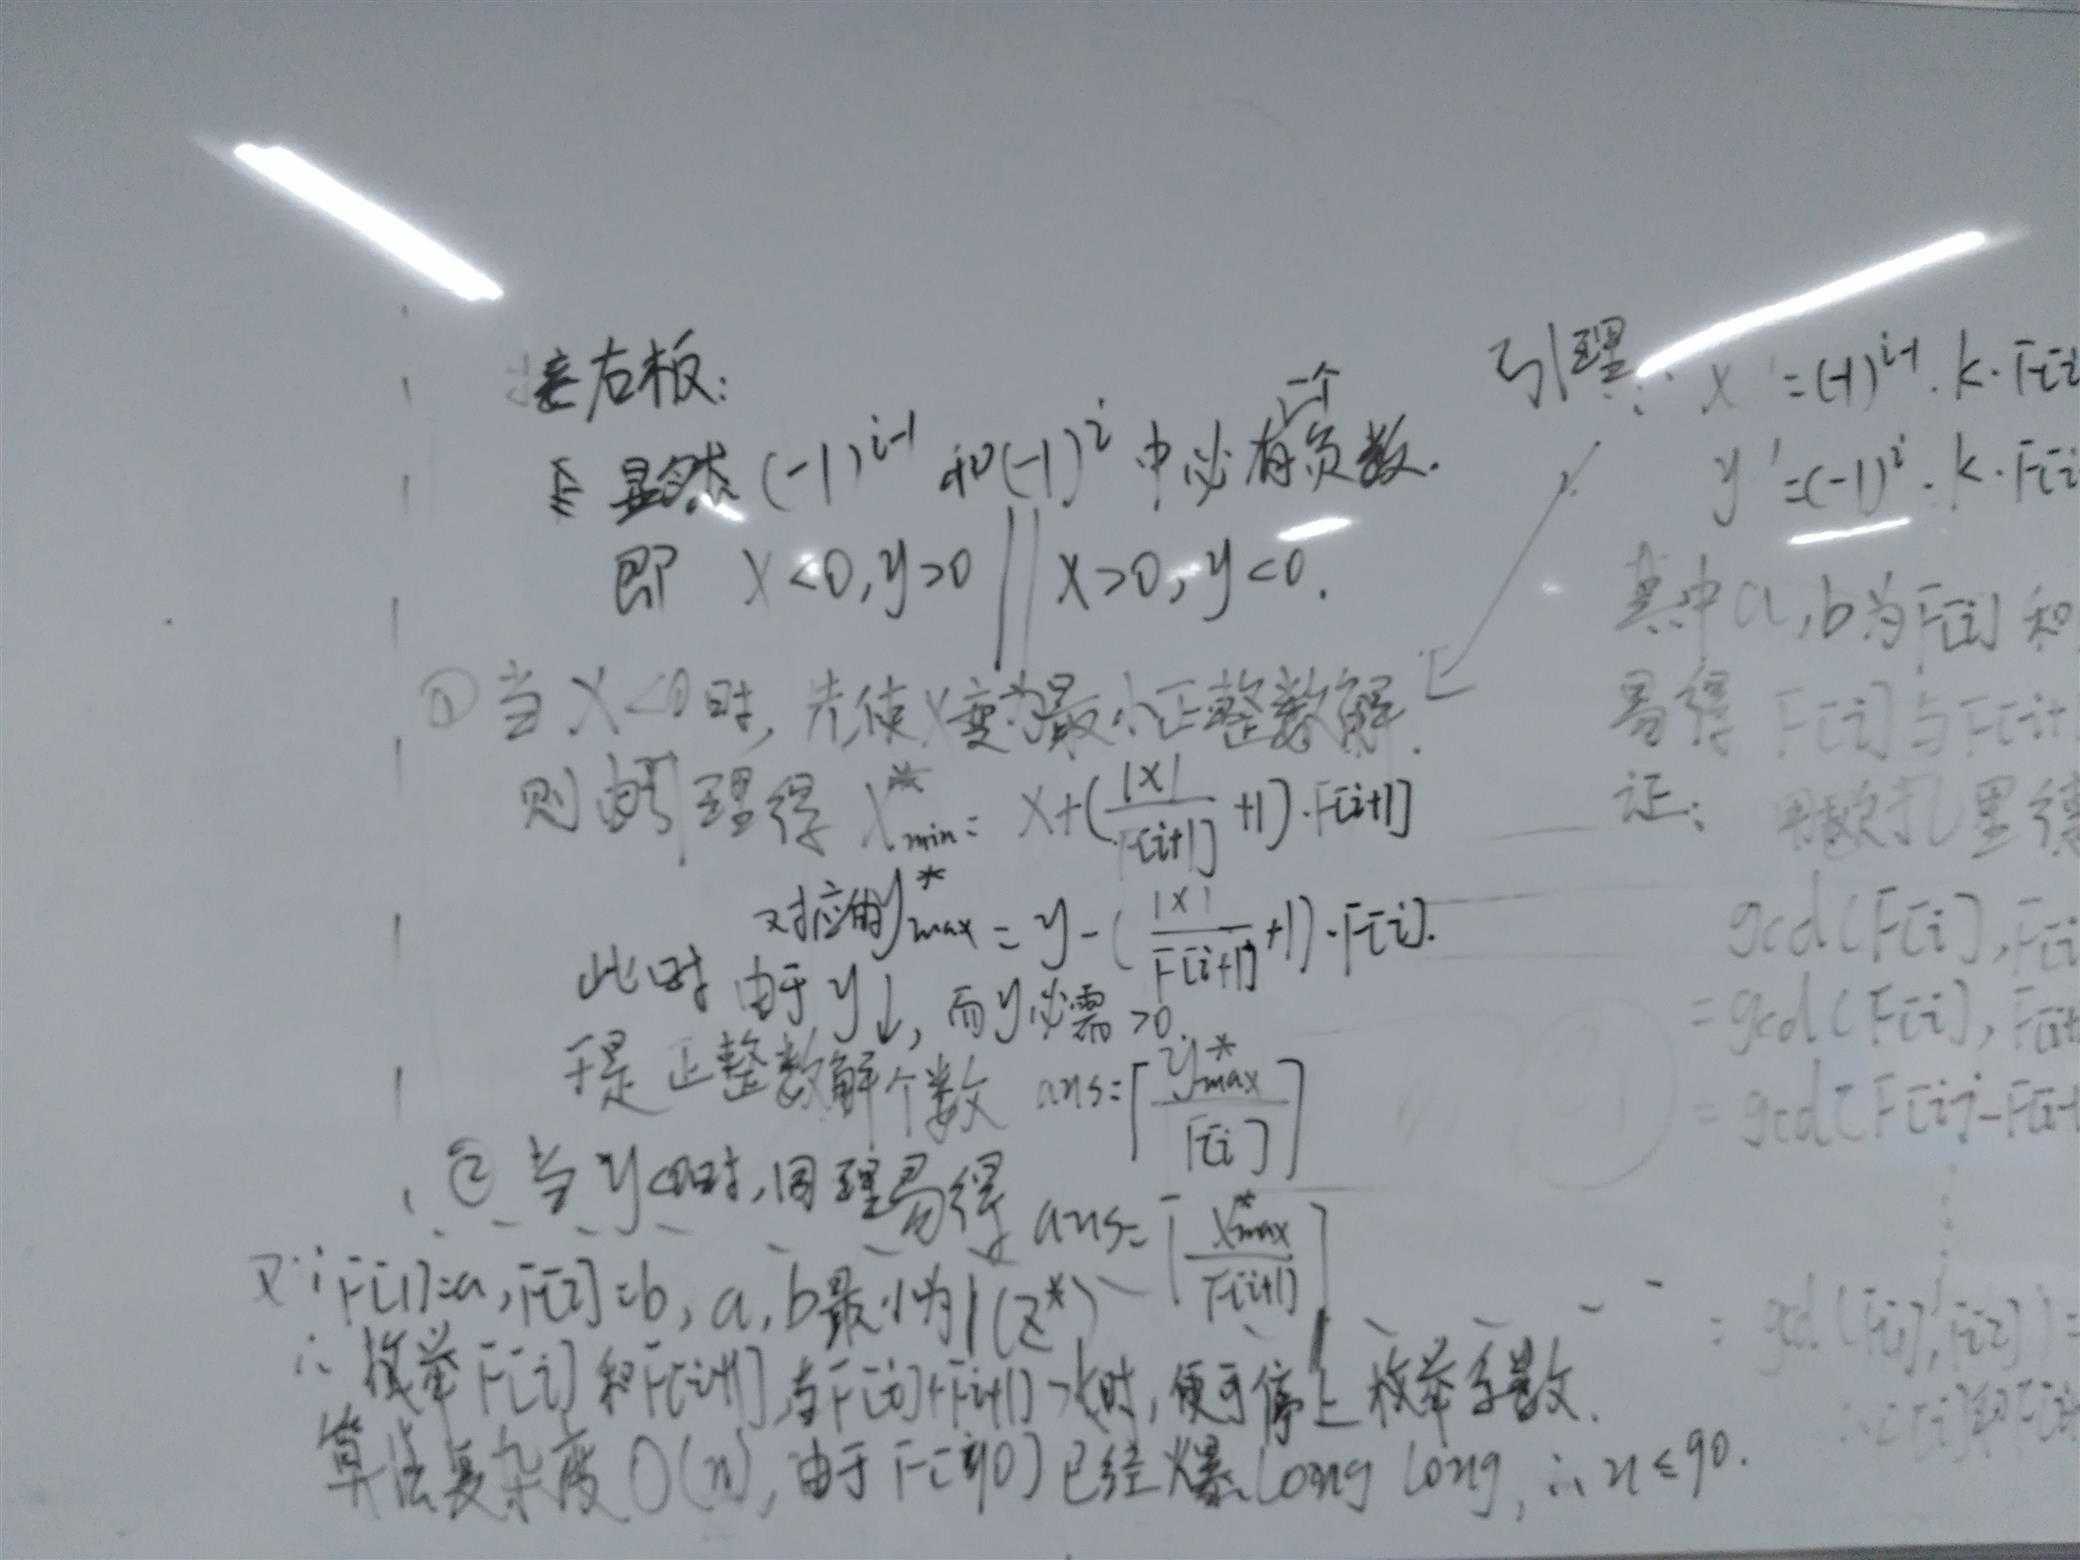 接右板:
显然 (-1)^{i-1} 和 (-1)^i 中必有一个负数.
即 x<0, y>0 || x>0, y<0.
① 当 x<0时, 先使x变为最小正整数解.
则由引理得 x*min = x+(|x|/F[i+1] +1)·F[i+1]
对应的y*max = y-(|x|/F[i+1]+1)·F[i].
此时由于y↓, 而y必需>0
于是正整数解个数 ans=⌈y*max/F[i]⌉
② 当y<0时, 同理易得 ans=⌈x*max/F[i+1]⌉
又∵F[1]=a, F[2]=b, a, b最小为1(Z*)
∴ 枚举F[i]和F[i+1], 当F[i]+F[i+1]>k时, 便可停止枚举系数.
算法复杂度O(n), 由于F[90]已经爆long long, ∴n≤90.
引理: x'=(-1)^{i-1}·k·F[i
y'=(-1)^i·k·F[i
其中a,b为F[i]和
易得 F[i]与F[i+
证: 用欧几里得
gcd(F[i],F[i
=gcd(F[i],F[i+
=gcd(F[i]-F[i-
=gcd(F[1],F[2])=